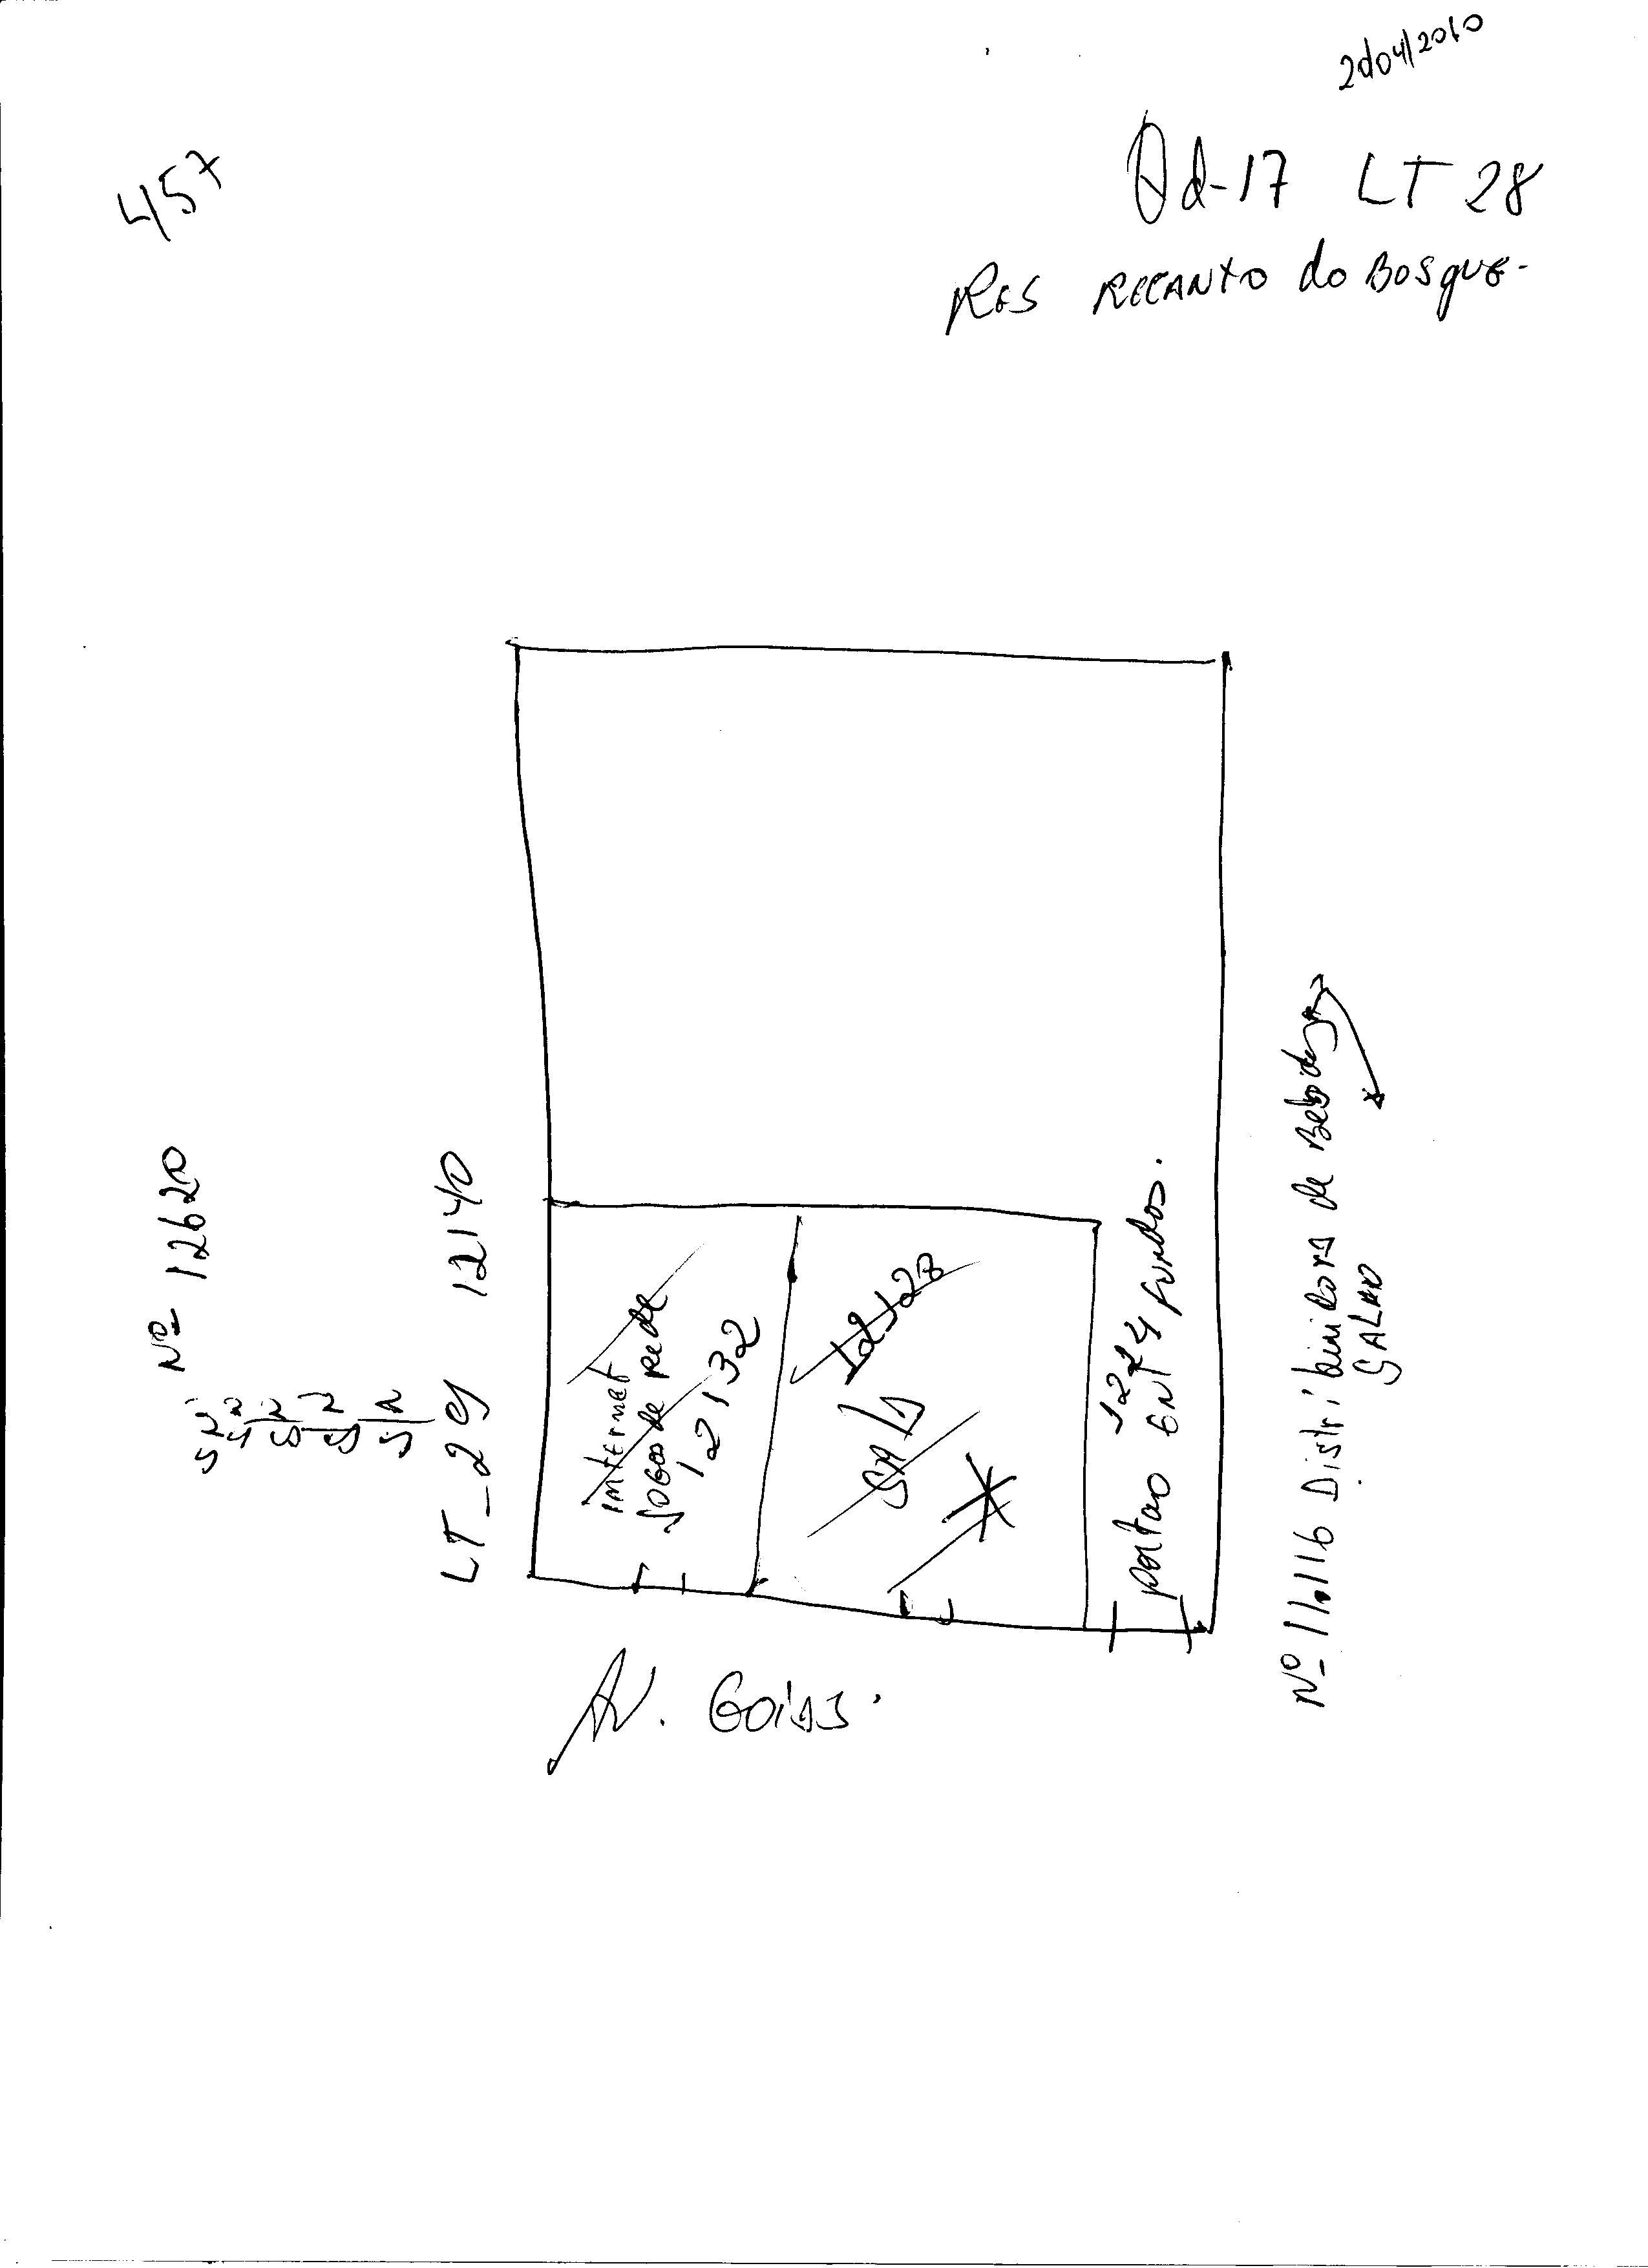 457
Qd-17 LT 28
RES RECANTO do BOSQUE-
Nº 12620
LT-29 12140
internet
Jogos de Rede
12132
12128
SALA
portão Ent fundos.
Nº 11.116 Distribuidora de Bebidas
GALÃO
AV. Goiás.